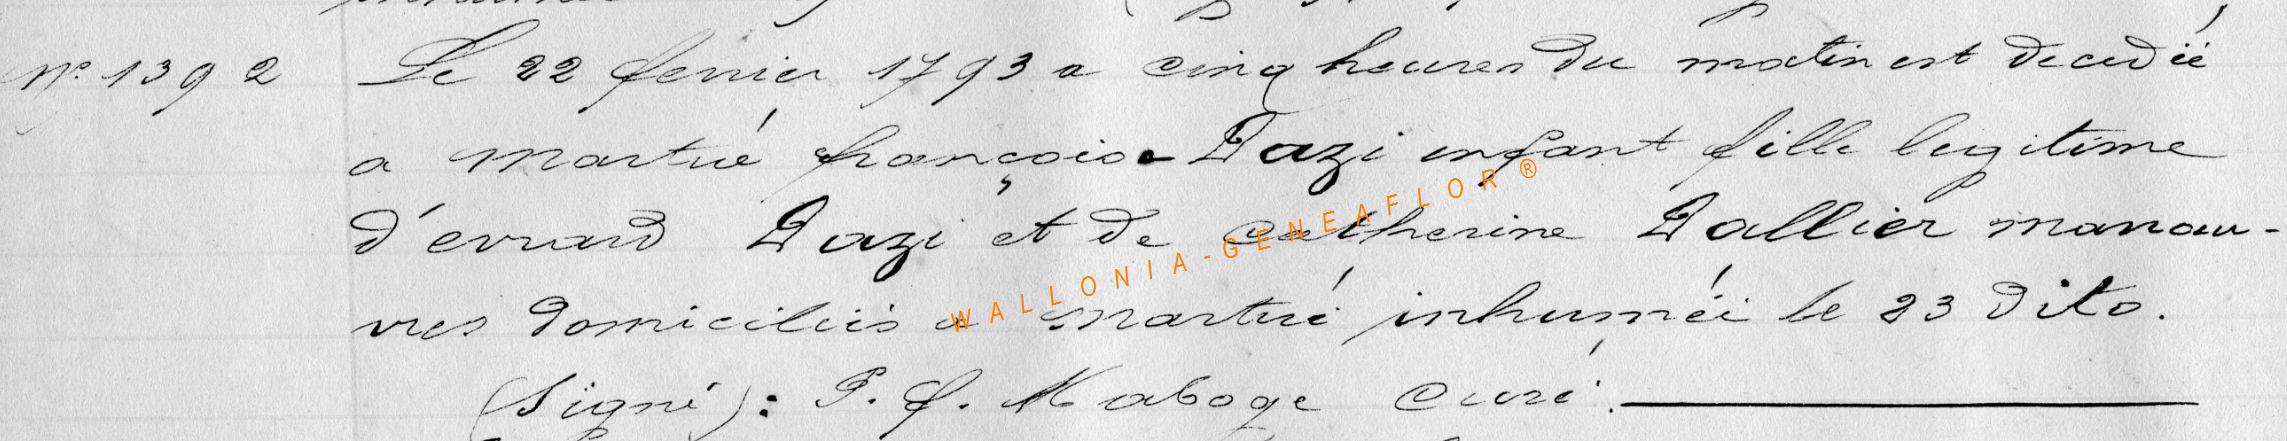 N° 1392 Le 22 fevrier 1793 a cinq heures du matin est decedée
a Martué françoise Dazi enfant fille legitime
d'evrard Dazi et de catherine Dallier manœu-
vres domiciliés a Martué inhumée le 23 dito.
(signé): P. f. Maboge Curé.
WALLONIA-GENEAFLOR®